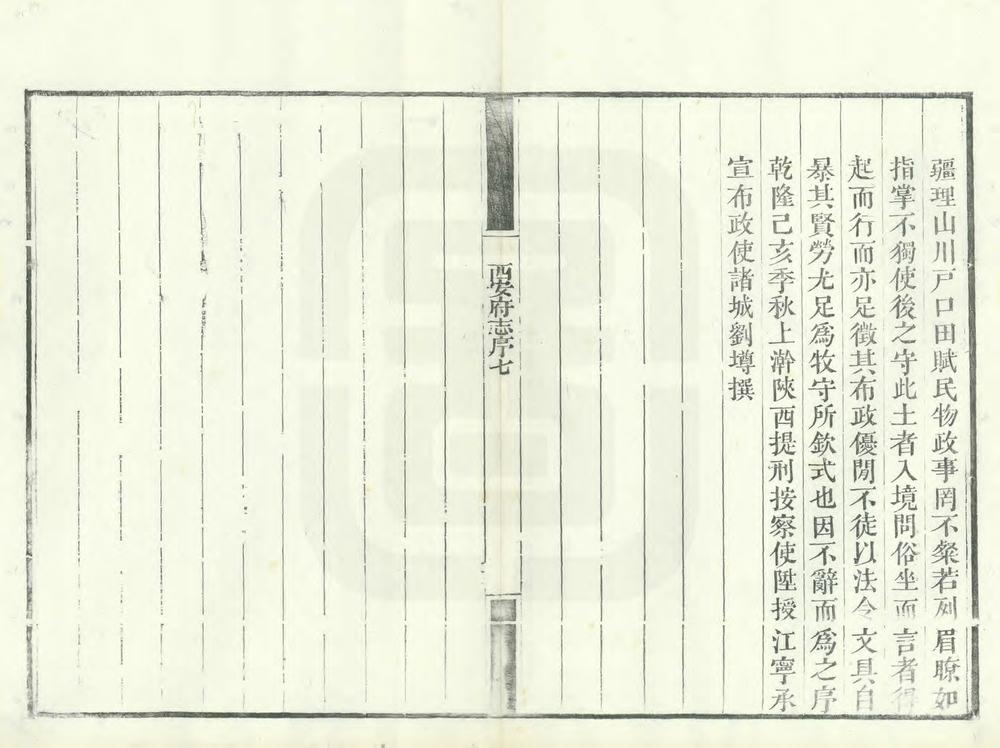 疆理山川戸口田賦民物政事罔不粲若列眉瞭如
指掌不獨使後之守此土者入境問俗坐而言者得
起而行而亦足徵其布政優閒不徒以法令文具自
暴其賢勞尤足爲牧守所欽式也因不辭而爲之序
乾隆己亥季秋上澣陝西提刑按察使陞授江寧承
宣布政使諸城劉墫撰
西安府志序七